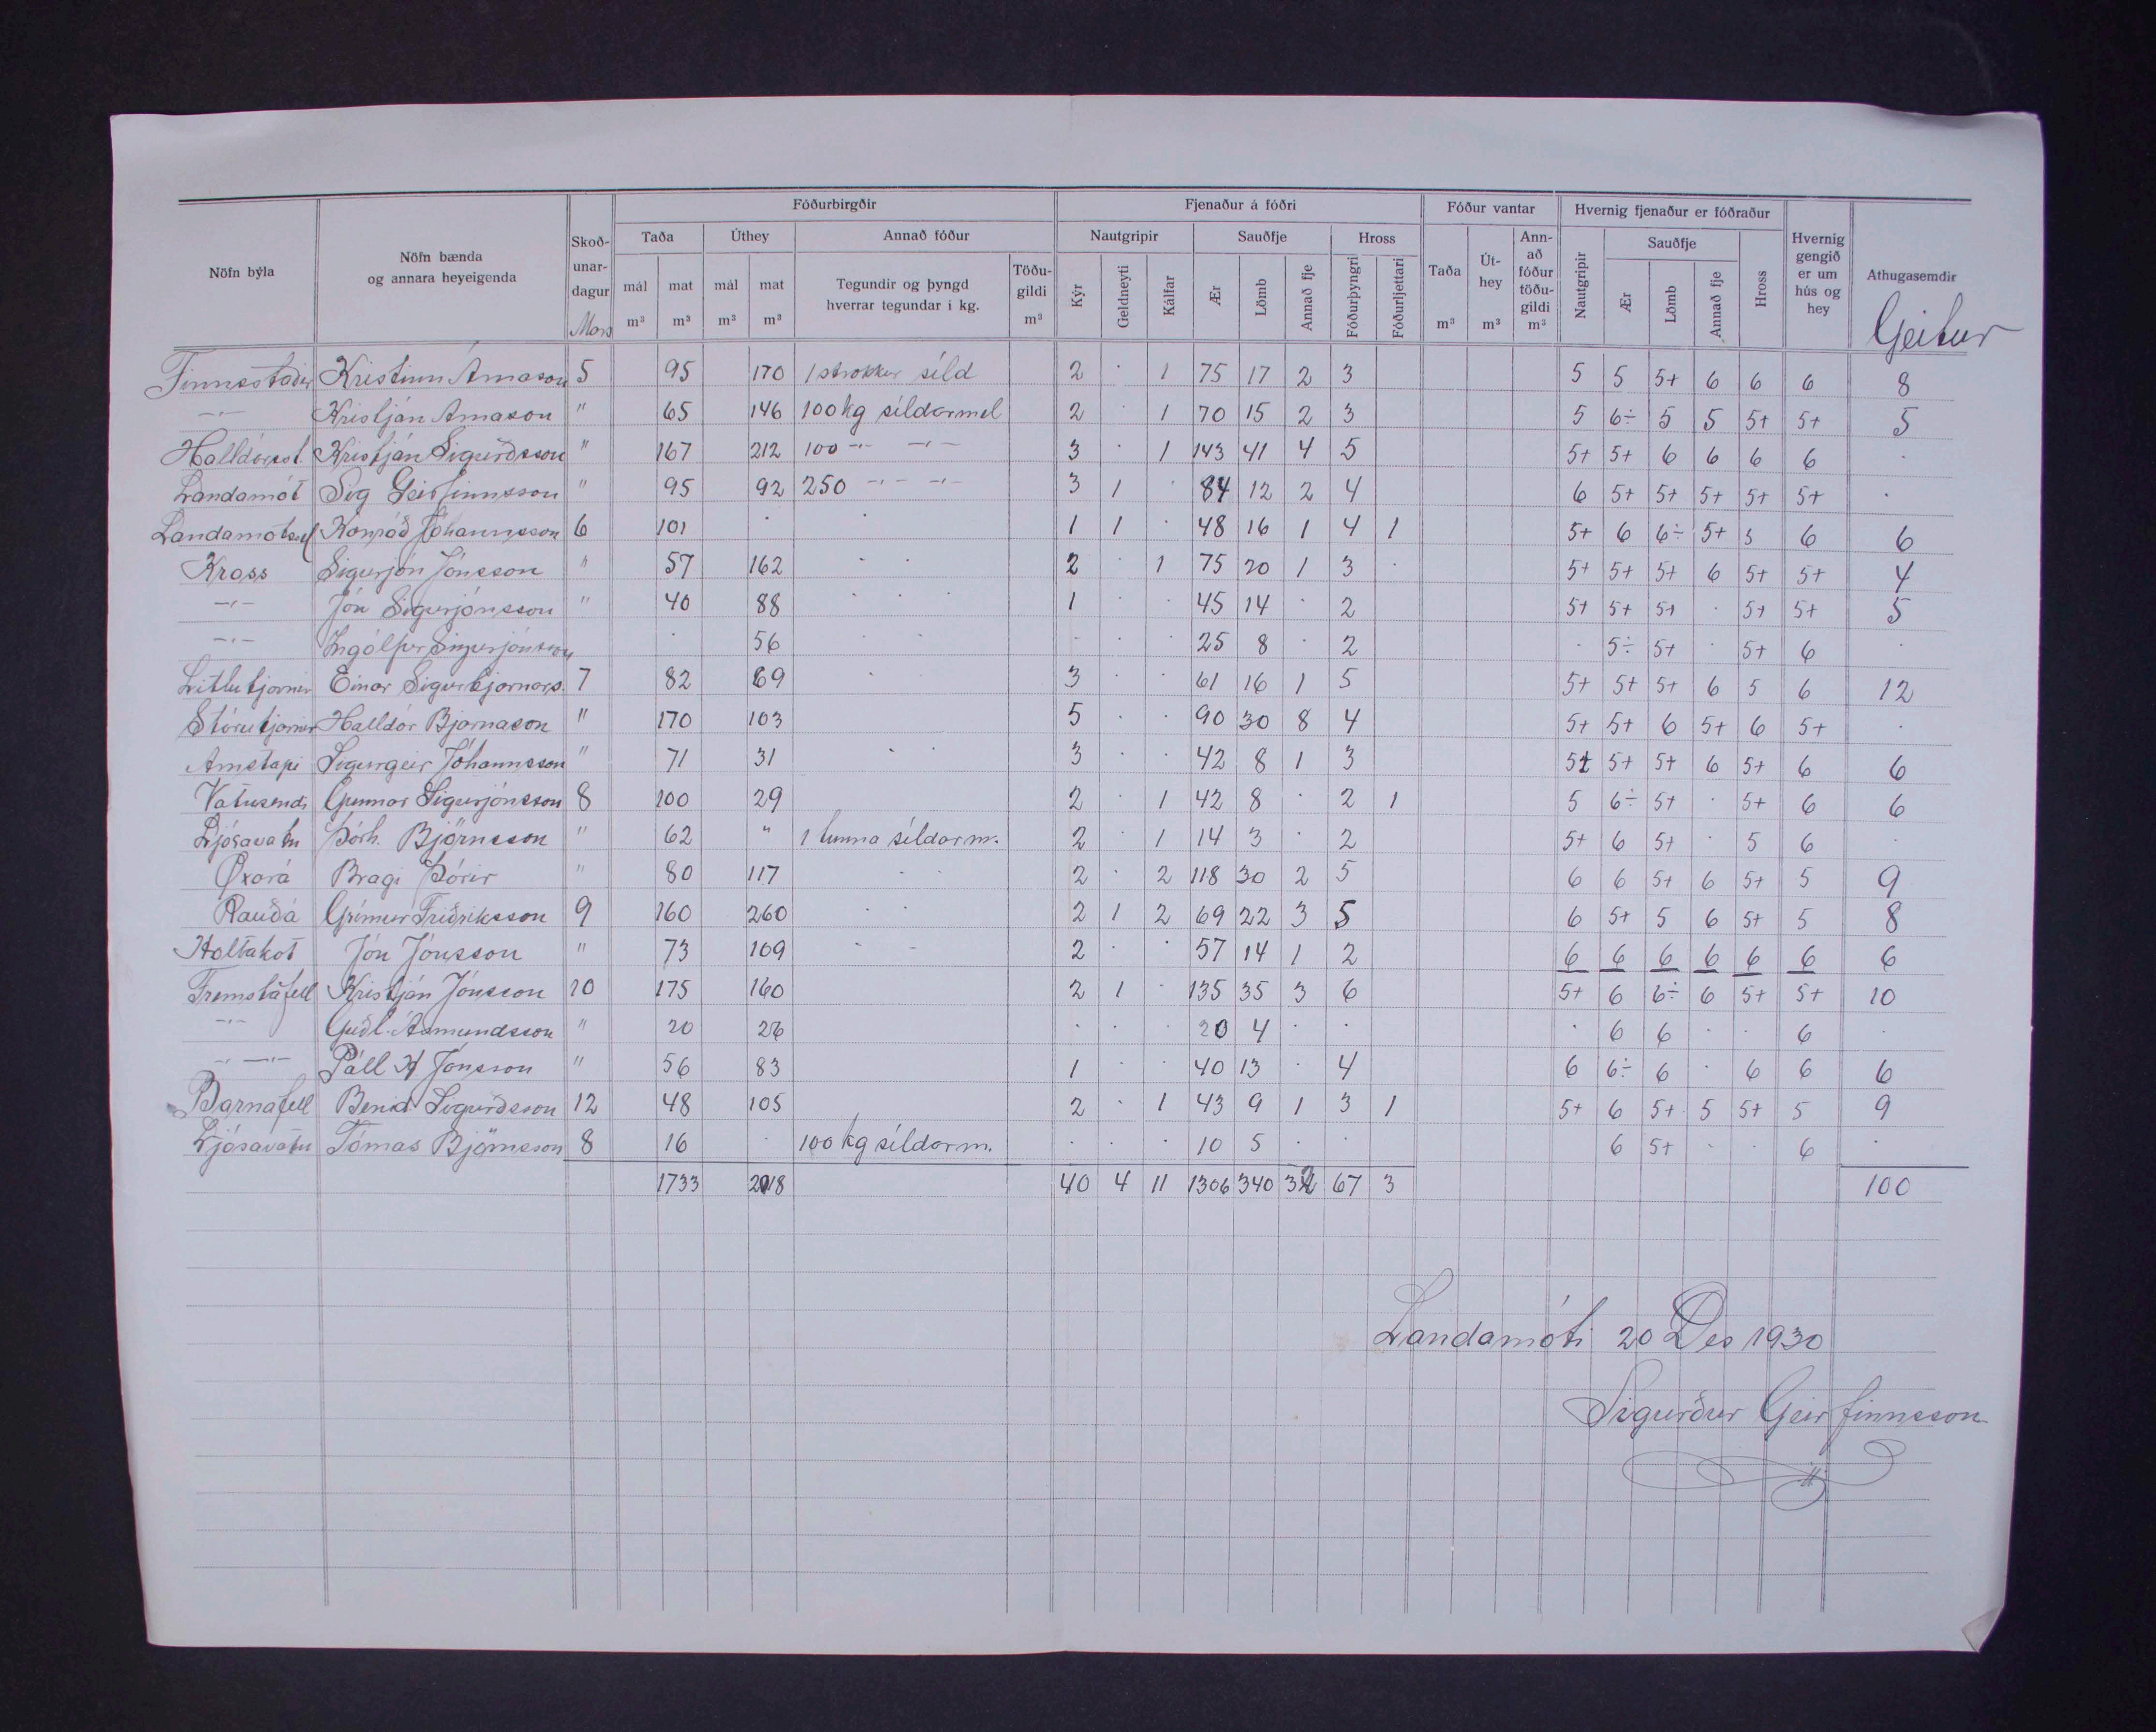 Fóðurbirgðir Fjenaður á fóðri Fóður vantar Hvernig fjenaður er fóðraður
Nöfn býla Nöfn bænda og annara heyeigenda Skoðunardagur Mars Taða Úthey Annað fóður Nautgripir Sauðfje Hross Taða m³ Úthey m³ Annað fóður töðugildi m³ Nautgripir Sauðfje Hross Hvernig gengið er um hús og hey Athugasemdir Geitur
mál m³ mat m³ mál m³ mat m³ Tegundir og þyngd hverrar tegundar í kg. Töðugildi m³ Kýr Geldneyti Kálfar Ær Lömb Annað fje Fóðurþyngri Fóðurljettari Ær Lömb Annað fje
Finnsstaðir Kristinn Árnason 5 95 170 1 strokkur síld 2 · 1 75 17 2 3 5 5 5+ 6 6 6 8
-"- Kristján Árnason " 65 146 100 kg síldarmel 2 · 1 70 15 2 3 5 6÷ 5 5 5+ 5+ 5
Halldórsst. Kristján Sigurðsson " 167 212 100 -"- -"- 3 · 1 143 41 4 5 5+ 5+ 6 6 6 6 ·
Landamót Sig Geirfinnsson " 95 92 250 -"- -"- 3 1 · 84 12 2 4 6 5+ 5+ 5+ 5+ 5+ ·
Landamótssel Konráð Jóhannsson 6 101 · · 1 1 · 48 16 1 4 1 5+ 6 6÷ 5+ 5 6 6
Kross Sigurjón Jónsson " 57 162 · · 2 · 1 75 20 1 3 · 5+ 5+ 5+ 6 5+ 5+ 4
-"- Jón Sigurjónsson " 40 88 · · · 1 · · 45 14 · 2 5+ 5+ 5+ · 5+ 5+ 5
-"- Ingólfur Sigurjónsson · 56 · · · · · 25 8 · 2 · 5÷ 5+ · 5+ 6 ·
Litlutjornir Einar Sigurbjornars. 7 82 69 · · 3 · · 61 16 1 5 5+ 5+ 5+ 6 5 6 12
Stórutjornir Halldór Bjarnason " 170 103 5 · · 90 30 8 4 5+ 5+ 6 5+ 6 5+ ·
Arnstapi Sigurgeir Jóhannsson " 71 31 · · 3 · · 42 8 1 3 5+ 5+ 5+ 6 5+ 6 6
Vatnsendi Gunnar Sigurjónsson 8 100 29 2 · 1 42 8 · 2 1 5 6÷ 5+ · 5+ 6 6
Ljósavatn Þórh. Björnsson " 62 " 1 tunna síldarm. 2 · 1 14 3 · 2 5+ 6 5+ · 5 6 ·
Øxará Bragi Þórir " 80 117 · · 2 · 2 118 30 2 5 6 6 5+ 6 5+ 5 9
Rauðá Grímur Friðriksson 9 160 260 · · 2 1 2 69 22 3 5 6 5+ 5 6 5+ 5 8
Holtakot Jón Jónsson " 73 109 · · 2 · · 57 14 1 2 6 6 6 6 6 6 6
Fremstafell Kristján Jónsson 10 175 160 2 1 · 135 35 3 6 5+ 6 6÷ 6 5+ 5+ 10
-"- Guðl. Ásmundsson " 20 26 · · · 20 4 · · · 6 6 · · 6 ·
-"- -"- Páll H Jónsson " 56 83 1 · · 40 13 · 4 6 6÷ 6 · 6 6 6
Barnafell Benid. Sigurðsson 12 48 105 2 · 1 43 9 1 3 1 5+ 6 5+ 5 5+ 5 9
Ljósavatn Tómas Björnsson 8 16 · 100 kg síldarm. · · · 10 5 · · 6 5+ · · 6 ·
1733 2018 40 4 11 1306 340 32 67 3 100
Landamóti 20 Des 1930
Sigurður Geirfinnsson